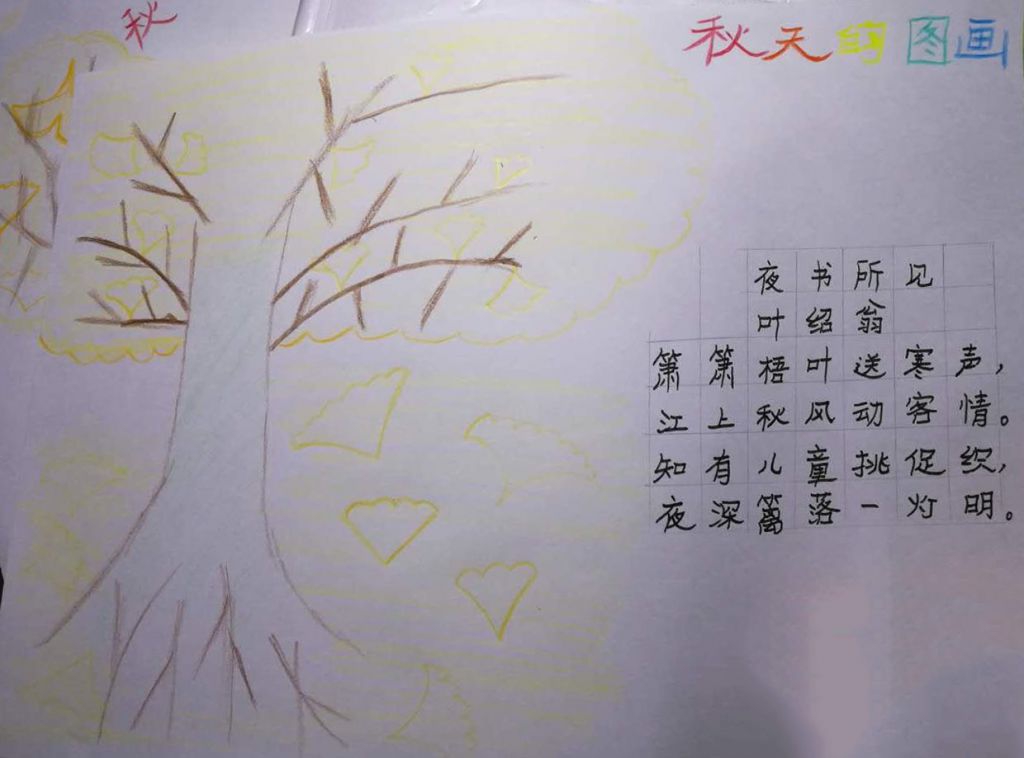 秋
秋天的图画
夜书所见
叶绍翁
箫箫梧叶送寒声，
江上秋风动客情。
知有儿童挑促织，
夜深篱落一灯明。